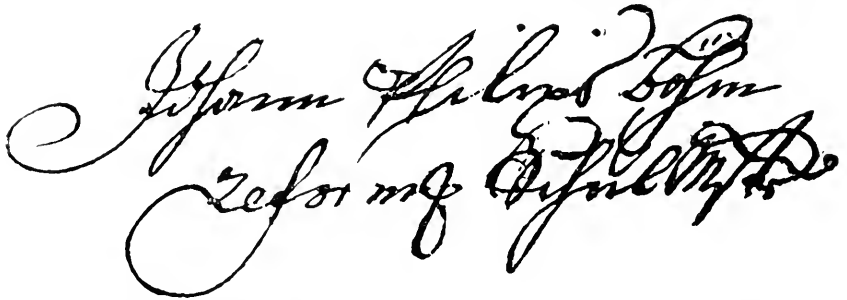 Johann Philips Böhm
Reform Schulmstr